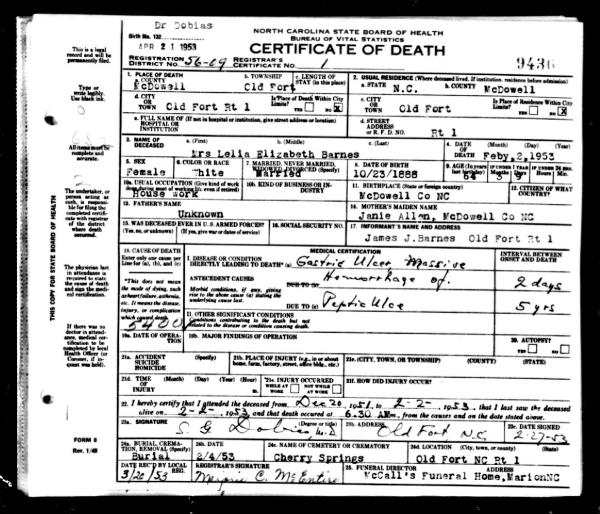 Dr Dobias
NORTH CAROLINA STATE BOARD OF HEALTH
BUREAU OF VITAL STATISTICS
CERTIFICATE OF DEATH
Birth No. 132
APR 21 1953
REGISTRATION DISTRICT NO. 56-69 REGISTRAR'S CERTIFICATE NO. 1 9436
1. PLACE OF DEATH
a. COUNTY McDowell
b. TOWNSHIP Old Fort
c. LENGTH OF STAY (in this place)
2. USUAL RESIDENCE (Where deceased lived. If institution: residence before admission)
a. STATE N.C. b. COUNTY McDowell
d. CITY OR TOWN Old Fort Rt 1
Is Place of Death Within City Limits? YES NO
c. CITY OR TOWN Old Fort
Is Place of Residence Within City Limits? YES NO
e. FULL NAME OF (If not in hospital or institution, give street address or location) HOSPITAL OR INSTITUTION
d. STREET ADDRESS OR R.F.D. NO. Rt 1
3. NAME OF DECEASED a. (First) b. (Middle) c. (Last)
Mrs Lelia Elizabeth Barnes
4. DATE OF DEATH (Month) (Day) (Year)
Feby, 2, 1953
5. SEX
Female
6. COLOR OR RACE
White
7. MARRIED, NEVER MARRIED, WIDOWED, DIVORCED (Specify)
Married
8. DATE OF BIRTH
10/23/1888
9. AGE (In years last birthday)
64
10a. USUAL OCCUPATION (Give kind of work done during most of working life, even if retired)
House work
10b. KIND OF BUSINESS OR INDUSTRY
11. BIRTHPLACE (State or foreign country)
McDowell Co NC
12. CITIZEN OF WHAT COUNTRY?
13. FATHER'S NAME
Unknown
14. MOTHER'S MAIDEN NAME
Janie Allen, McDowell Co NC
15. WAS DECEASED EVER IN U.S. ARMED FORCES?
(Yes, no, or unknown) (If yes, give war or dates of service)
16. SOCIAL SECURITY NO.
17. INFORMANT'S NAME AND ADDRESS
James J.Barnes Old Fort Rt 1
18. CAUSE OF DEATH
Enter only one cause per Line for (a), (b), and (c)
*This does not mean the mode of dying, such as heart failure, asthenia, etc. It means the disease, injury, or complication which caused death.
5400
MEDICAL CERTIFICATION
I. DISEASE OR CONDITION DIRECTLY LEADING TO DEATH* (a) Gastric Ulcer Massive
ANTECEDENT CAUSES
Hemorrhage of.
Morbid conditions, if any, giving rise to the above cause (a) stating the underlying cause last.
DUE TO (b)
DUE TO (c) Peptic Ulce
INTERVAL BETWEEN ONSET AND DEATH
2 days
5 yrs
II. OTHER SIGNIFICANT CONDITIONS
Conditions contributing to the death but not related to the disease or condition causing death.
19a. DATE OF OPERATION
19b. MAJOR FINDINGS OF OPERATION
20. AUTOPSY?
YES NO
21a. ACCIDENT SUICIDE HOMICIDE (Specify)
21b. PLACE OF INJURY (e.g., in or about home, farm, factory, street, office bldg., etc.)
21c. (CITY, TOWN, OR TOWNSHIP) (COUNTY) (STATE)
21d. TIME OF INJURY (Month) (Day) (Year) (Hour)
21e. INJURY OCCURRED
WHILE AT WORK NOT WHILE AT WORK
21f. HOW DID INJURY OCCUR?
22. I hereby certify that I attended the deceased from Dec 20, 1951, to 2-2-, 1953, that I last saw the deceased
alive on 2-2-, 1953 and that death occurred at 6.30 AM., from the causes and on the date stated above.
23a. SIGNATURE (Degree or title)
M.D.
23b. ADDRESS
Old Fort N.C.
23c. DATE SIGNED
2-27-53
24a. BURIAL, CREMATION, REMOVAL (Specify)
Burial
24b. DATE
2/4/53
24c. NAME OF CEMETERY OR CREMATORY
Cherry Springs
24d. LOCATION (City, town, or county) (State)
Old Fort NC Rt 1
DATE REC'D BY LOCAL REG.
3/20/53
REGISTRAR'S SIGNATURE
Marjorie C. McEntire
25. FUNERAL DIRECTOR ADDRESS
McCall's Funeral Home, MarionNC
This is a legal record and will be permanently filed.
Type or write legibly. Use black ink.
All items must be complete and accurate.
The undertaker, or person acting as such, is responsible for filing the completed certificate with registrar of the district where death occurred.
The physician last in attendance is required to state the cause of death and sign the medical certification.
If there was no doctor in attendance, medical certification to be completed by local Health Officer (or Coroner, if inquest was held).
THIS COPY FOR STATE BOARD OF HEALTH
FORM 8
Rev. 1/49